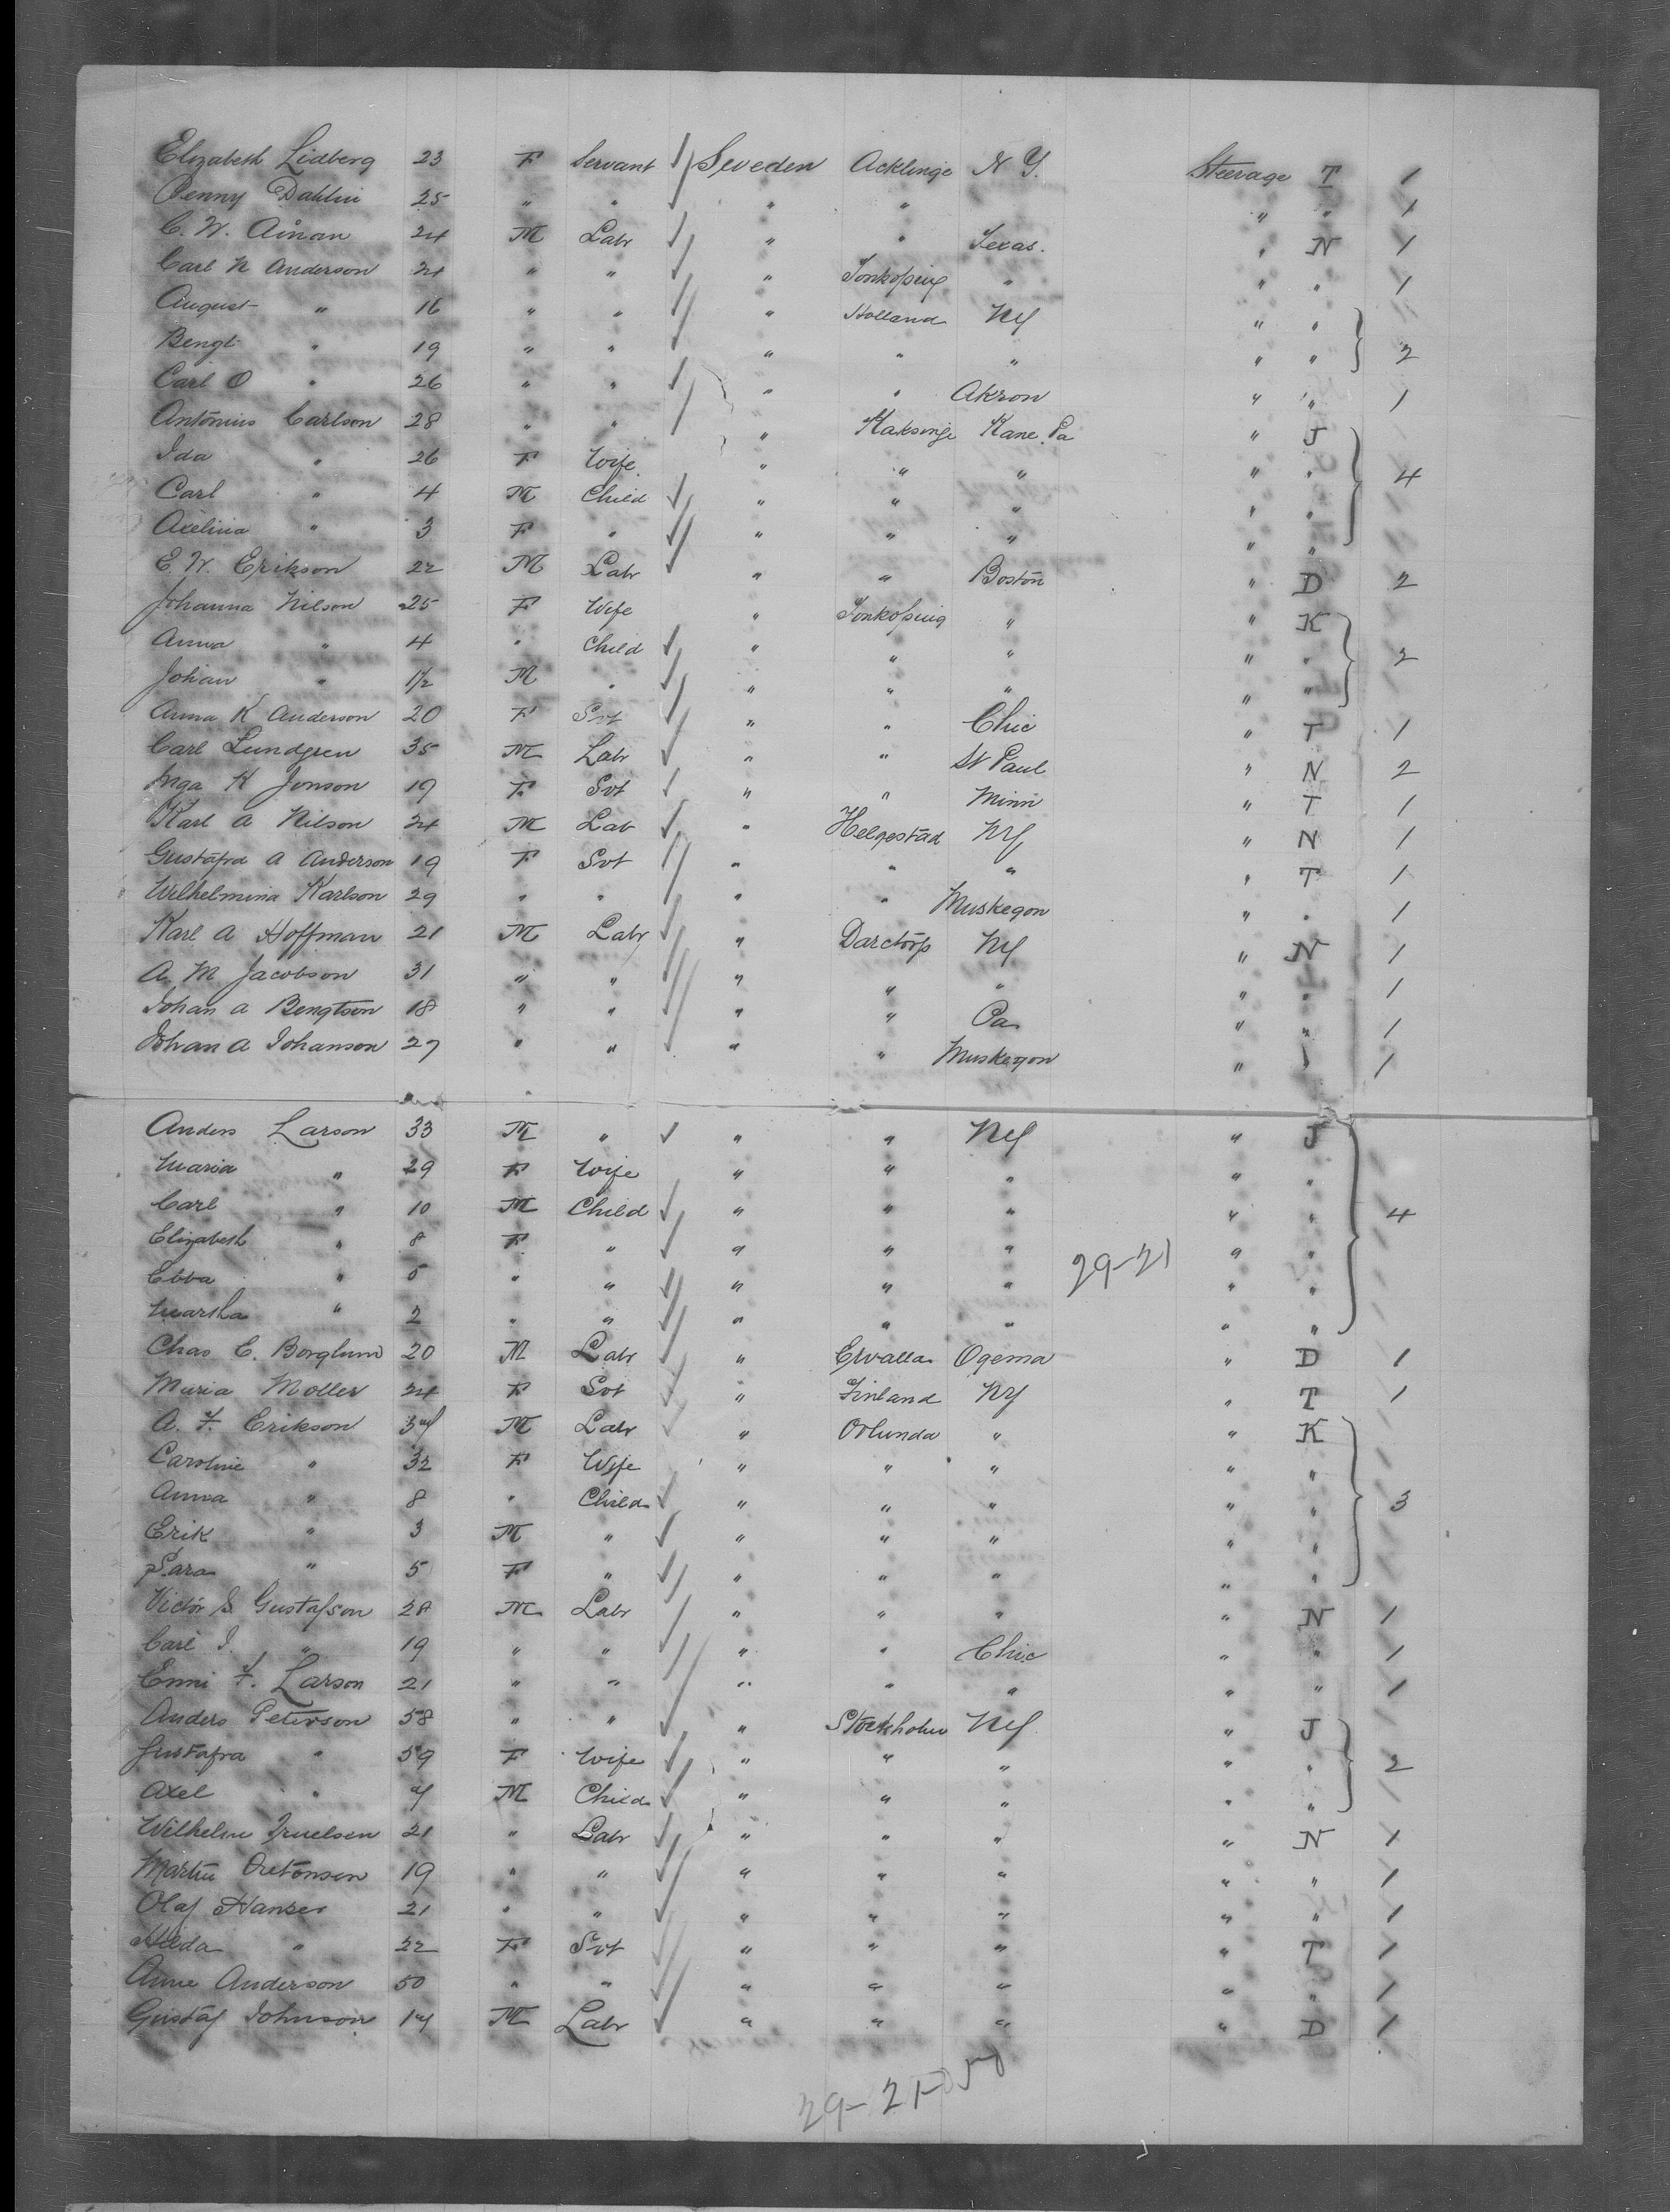 Elizabeth Lidberg 23 F Servant Sweden Acklinge N Y. Steerage T 1
Penny Dahlin 25 " " " " " " 1
C. W. 24 M Labr " " Texas. " N 1
Carl N Anderson 24 " " " Jonkoping " " " 1
August " 16 " " " Holland NY " "
Bengt " 19 " " " " " " " 2
Carl O " 26 " " " " Akron " " 1
Antonius Carlson 28 " " " Kane Pa " J
Ida " 26 F Wife " " " " " 4
Carl " 4 M Child " " " " "
Axelina " 3 F " " " " " "
E. W. Erikson 22 M Labr " " Boston " D 2
Johanna Nilson 25 F Wife " Jonkoping " " K
Anna " 4 " Child " " " " " 2
Johan " 1½ M " " " " " "
Anna K Anderson 20 F Svt " " Chic " T 1
Carl Lundgren 35 M Labr " " St Paul " N 2
Inga K Jonson 19 F Svt " " Minn " T 1
Karl A Nilson 24 M Lab " Helgestad NY " N 1
Gustafva A Anderson 19 F Svt " " " " T 1
Wilhelmina Karlson 29 " " " " Muskegon " " 1
Karl A Hoffman 21 M Labr " Darctorp NY " N 1
A. M Jacobson 31 " " " " " " " 1
Johan A Bengtson 18 " " " " Pa " " 1
Johan A Johanson 27 " " " " Muskegon " " 1
Anders Larson 33 M " " " NY " J
Maria " 29 F Wife " " " " "
Carl " 10 M Child " " " " " 4
Elizabeth " 8 F " " " " " "
29-21
Ebba " 5 " " " " " " "
Martha " 2 " " " " " " "
Chas E. Borglund 20 M Labr " Ervalla Ogema " D 1
Maria Moller 24 F Svt " Finland NY " T 1
A. F. Erikson 34 M Labr " Orlunda " " K
Caroline " 32 F Wife " " " " "
Anna " 8 " Child " " " " " 3
Erik " 3 M " " " " " "
Sara " 5 F " " " " " "
Victor S. Gustafson 28 M Labr " " " " N 1
Carl J. " 19 " " " " Chic " " 1
F. Larson 21 " " " " " " " 1
Anders Peterson 58 " " " Stockholm NY. " J
Gustafva " 59 F Wife " " " " " 2
Axel " 4 M Child " " " " "
Wilhelm Truelsen 21 " Labr " " " " N 1
Martin 19 " " " " " " " 1
Olaf Hansen 21 " " " " " " " 1
Hilda " 22 F Svt " " " " T 1
Anne Anderson 50 " " " " " " " 1
Gustaf Johnson 14 M Labr " " " " D 1
29-21-50